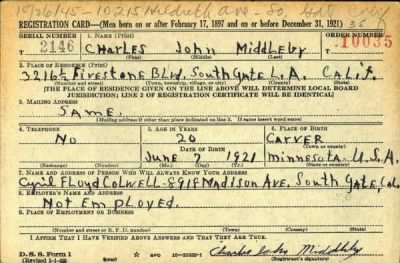 10/26/45 - 10215
REGISTRATION CARD—(Men born on or after February 17, 1897 and on or before December 31, 1921)
SERIAL NUMBER 1. Name (Print) ORDER NUMBER
2146 CHARLES John Middleby 10035
(First) (Middle) (Last)
2. PLACE OF RESIDENCE (Print)
3216½ Firestone Blvd. South Gate L.A. Calif.
(Number and street) (Town, township, village, or city) (County) (State)
[THE PLACE OF RESIDENCE GIVEN ON THE LINE ABOVE WILL DETERMINE LOCAL BOARD
JURISDICTION; LINE 2 OF REGISTRATION CERTIFICATE WILL BE IDENTICAL]
3. MAILING ADDRESS
SAME.
[Mailing address if other than place indicated on line 2. If same insert word same]
4. TELEPHONE 5. AGE IN YEARS 6. PLACE OF BIRTH
No 20 CARVER
DATE OF BIRTH (Town or county)
June 7 1921 Minnesota - U.S.A.
(Exchange) (Number) (Mo.) (Day) (Yr.) (State or country)
7. NAME AND ADDRESS OF PERSON WHO WILL ALWAYS KNOW YOUR ADDRESS
Cyril Floyd Colwell - 8918 Madison Ave. South Gate, Cal.
8. EMPLOYER'S NAME AND ADDRESS
Not Employed.
9. PLACE OF EMPLOYMENT OR BUSINESS
(Number and street or R. F. D. number) (Town) (County) (State)
I AFFIRM THAT I HAVE VERIFIED ABOVE ANSWERS AND THAT THEY ARE TRUE.
D. S. S. Form 1 Charles John Middleby
(Revised 1-1-42) (Registrant's signature)